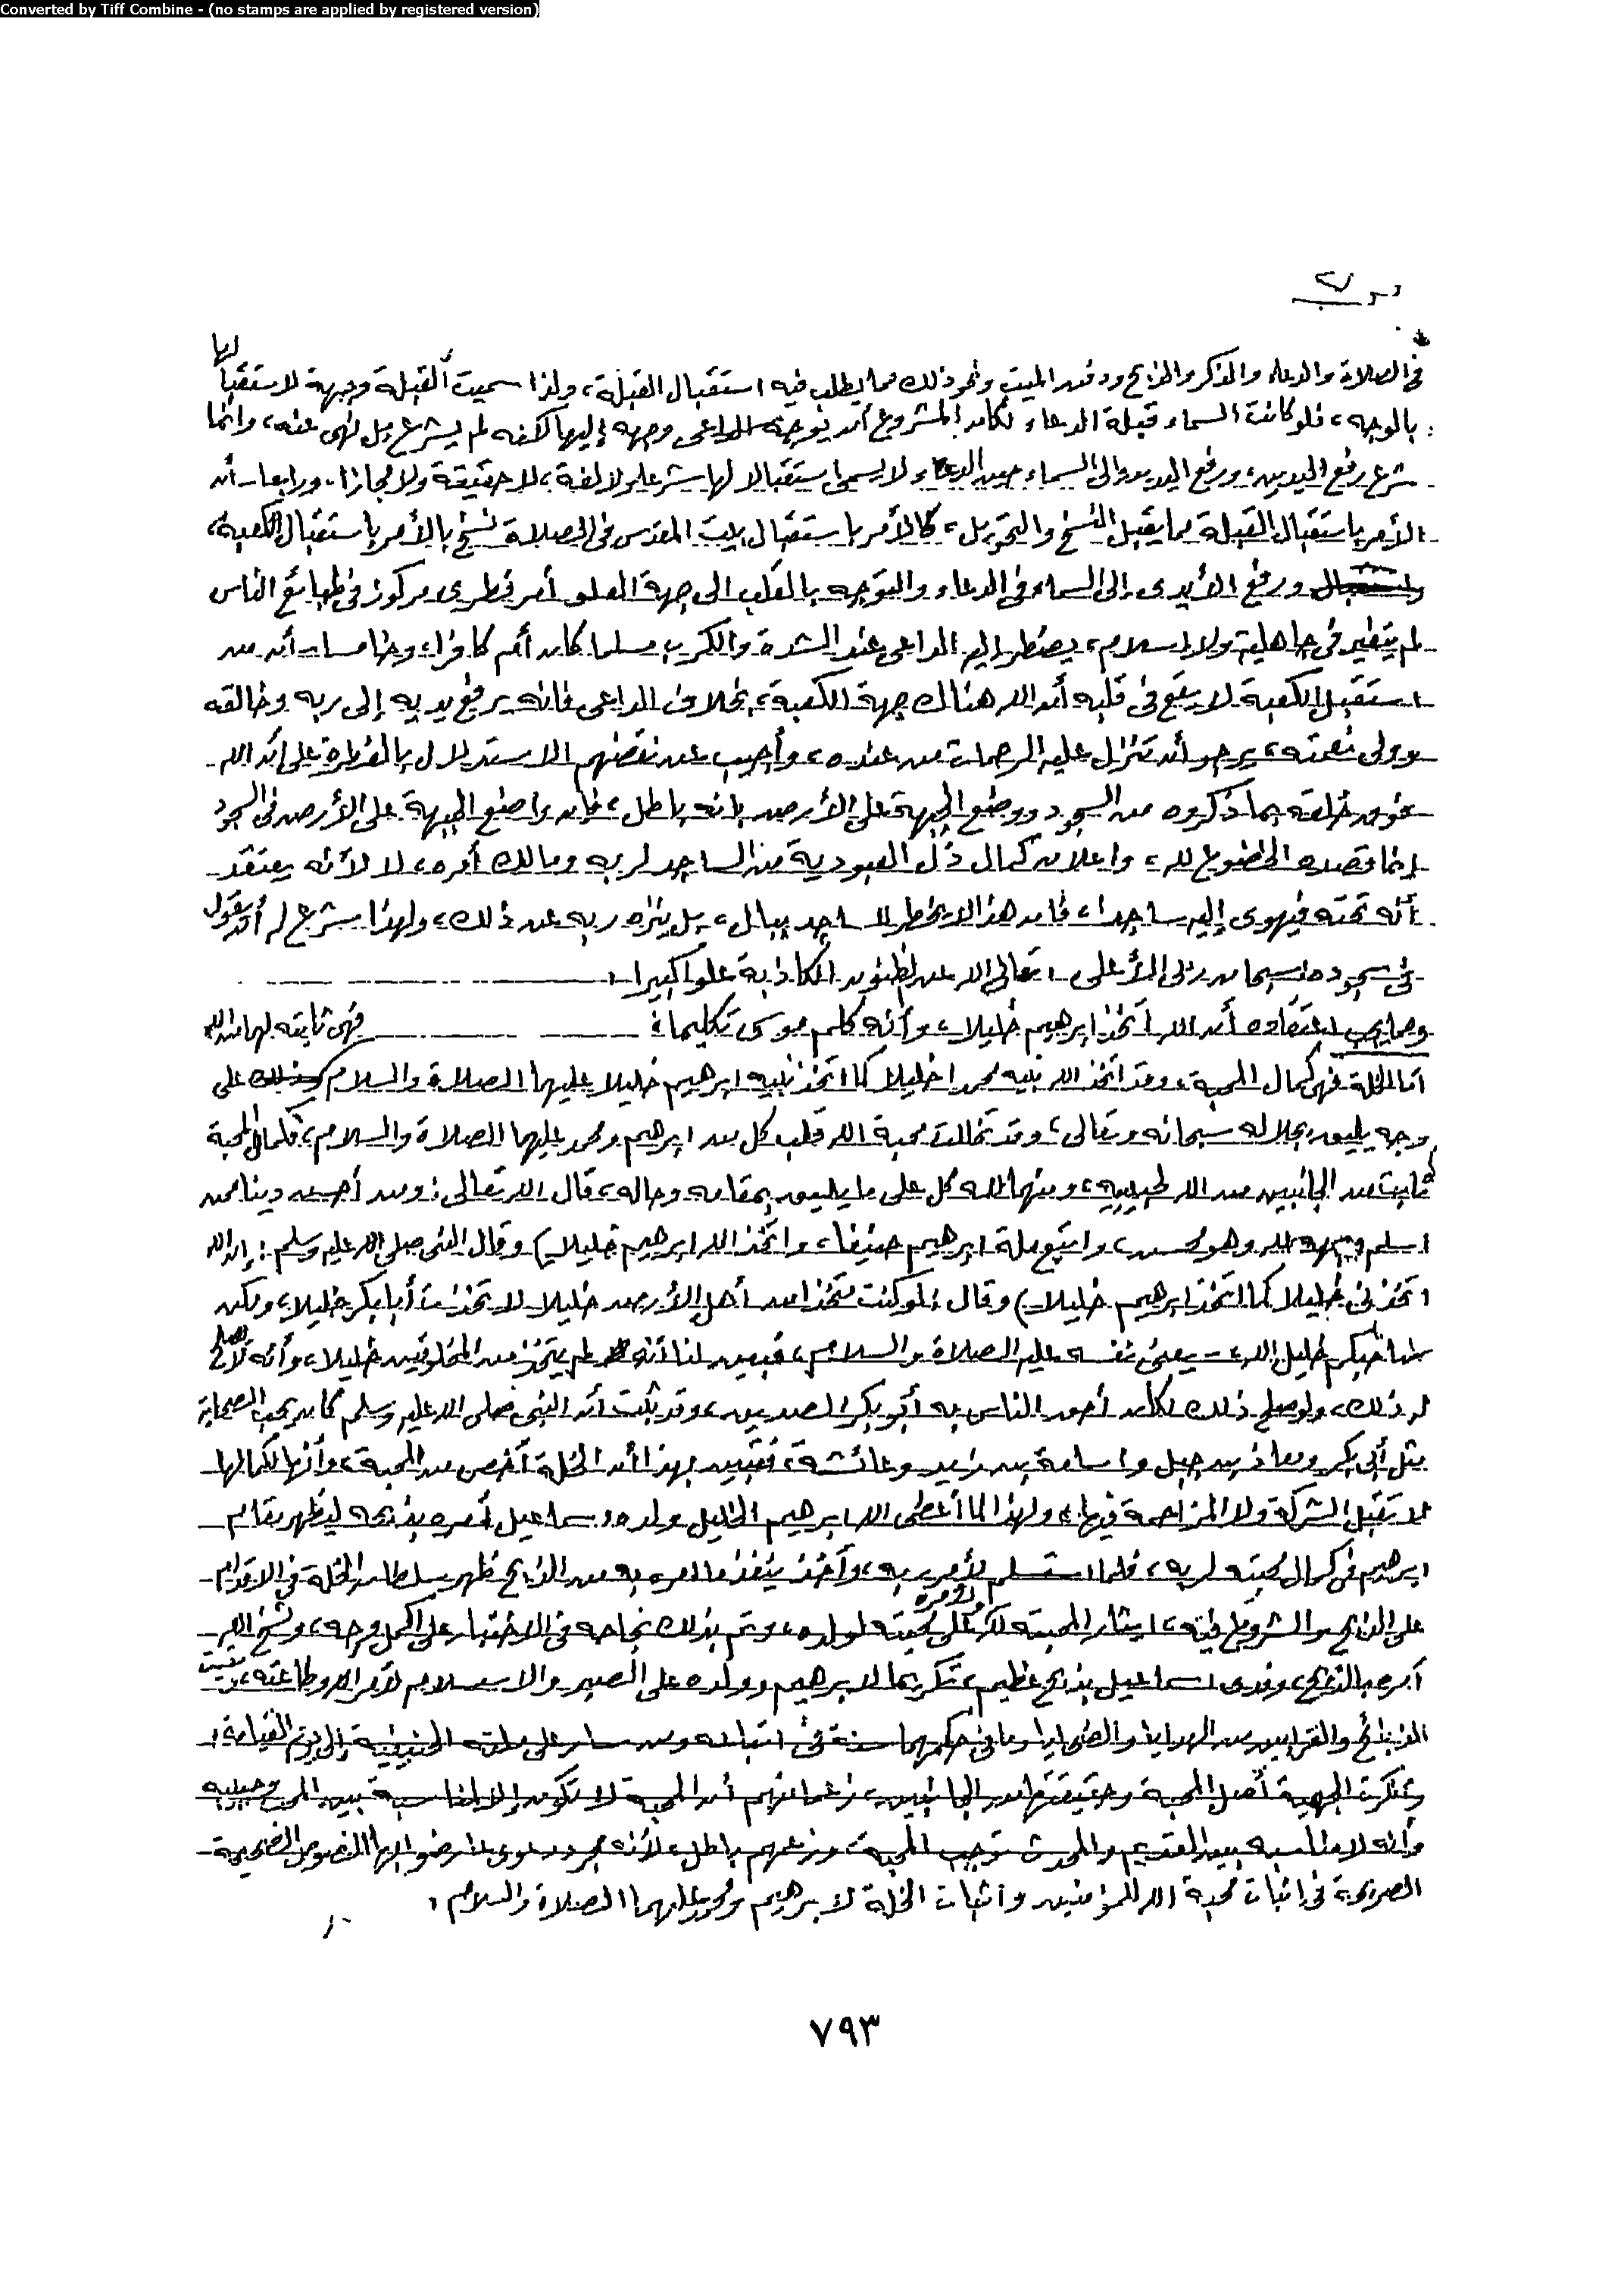 Converted by Tiff Combine - (no stamps are applied by registered version)
في الصلاة والدعاء والذكر والذبح ودفن الميت ونحو ذلك مما يطلب فيه استقبال القبلة، ولذا سميت القبلة وجهة لاستقبالها
بالوجه، فلو كانت السماء قبلة الدعاء لكان المشروع أن يوجه الداعي وجهه إليها لكنه لم يشرع بل نهى عنه، وإنما
شرع رفع اليدين، ورفع اليدين إلى السماء حين الدعاء لا يسمى استقبالا لها شرعا ولا لغة، لا حقيقة ولا مجازا. ورابعا- أن
الأمر باستقبال القبلة مما يقبل النسخ والتحويل، كالأمر باستقبال بيت المقدس في الصلاة نسخ بالأمر باستقبال الكعبة،
ورفع الأيدي إلى السماء في الدعاء والتوجه بالقلب إلى جهة العلو أمر فطري مركوز في طبائع الناس
لم يتغير في جاهلية ولا إسلام، يضطر إليه الداعي عند الشدة والكرب مسلما كان أم كافرا، وخامسا- أن من
استقبل الكعبة لا يقع في قلبه أن الله هناك جهة الكعبة، بخلاف الداعي فإنه يرفع يديه إلى ربه وخالقه
وولي نعمته، يرجو أن تتنزل عليه الرحمات من عنده، وأجيب عن نقضهم الاستدلال بالفطرة على أن الله
فوق خلقه بما ذكروه من السجود ووضع الجبهة على الأرض بأنه باطل، فإن واضع الجبهة على الأرض في السجود
إنما قصده الخضوع لله، وإعلان كمال ذل العبودية من الساجد لربه ومالك أمره، لا لأنه يعتقد
أنه تحته فيهوي إليه ساجدا، فإن هذا لا يخطر للساجد ببال، بل ينزه ربه عن ذلك، ولهذا شرع له أن يقول
في سجوده سبحان ربي الأعلى، تعالى الله عن الظنون الكاذبة علوا كبيرا،
ومما يجب اعتقاده أن الله اتخذ إبرهيم خليلا، وأنه كلم موسى تكليما؛ فهي ثابتة لهما
أما الخلة فهي كمال المحبة، وقد اتخذ الله نبيه محمدا خليلا كما اتخذ نبيه إبرهيم خليلا عليهما الصلاة والسلام وذلك على
وجه يليق بجلاله سبحانه وتعالى، وقد تخللت محبة الله قلب كل من إبرهيم ومحمد عليهما الصلاة والسلام، فكمال المحبة
ثابت من الجانبين من الله لخليليه، ومنهما لله كل على ما يليق بمقامه وحاله، قال الله تعالى: ومن أحسن دينا ممن
أسلم وجهه لله وهو محسن، واتبع ملة إبرهيم حنيفا، واتخذ الله إبرهيم خليلا) وقال النبي صلى الله عليه وسلم: إن الله
اتخذني خليلا كما اتخذ إبرهيم خليلا) وقال: لو كنت متخذا من أهل الأرض خليلا لاتخذت أبا بكر خليلا، ولكن
صاحبكم خليل الله،- يعني نفسه عليه الصلاة والسلام، فبين لنا أنه لم يتخذ من المخلوقين خليلا، وأنه لا يصلح
له ذلك، ولو صلح ذلك لكان أحق الناس به أبو بكر الصديق، وقد ثبت أن النبي صلى الله عليه وسلم كان يحب الصحابة
مثل أبي بكر ومعاذ بن جبل وأسامة بن زيد وعائشة، فتبين بهذا أن الخلة أخص من المحبة، وأنها لكمالها
لا تقبل الشركة ولا المزاحمة فيها، ولهذا لما أعطى الله إبرهيم الخليل ولده إسماعيل أمره بذبحه ليظهر مقام
إبرهيم في كمال محبته لربه، فلما استسلم لأمر ربه، وأخذ ينفذ ما أمره به من الذبح ظهر سلطان الخلة في الإقدام
على الذبح والشروع فيه، إيثار المحبة الله وأمره على محبته لولده، وتم بذلك نجاحه في الاختبار على أكمل وجه، ونسخ الله
أمره بالذبح، وفدى إسماعيل بذبح عظيم، تكريما لإبرهيم وولده على الصبر والاستسلام لأمر الله وطاعته،
الذبائح والقرابين من الهدايا والضحايا وما في حكمهما سنة في أتباعه ومن سار على ملته الحنيفية إلى يوم القيامة؛
وأنكرت الجهمية أصل المحبة وحقيقتها من الجانبين، زعما منهم أن المحبة لا تكون إلا لمناسبة بين المحب وحبيبه
وأنه لا مناسبة بين القديم والمحدث توجب المحبة، وزعمهم باطل، لأنه مجرد دعوى عارضوا بها النصوص الصحيحة
الصريحة في إثبات محبة الله للمؤمنين وإثبات الخلة لإبرهيم ومحمد عليهما الصلاة والسلام،
٧٩٣